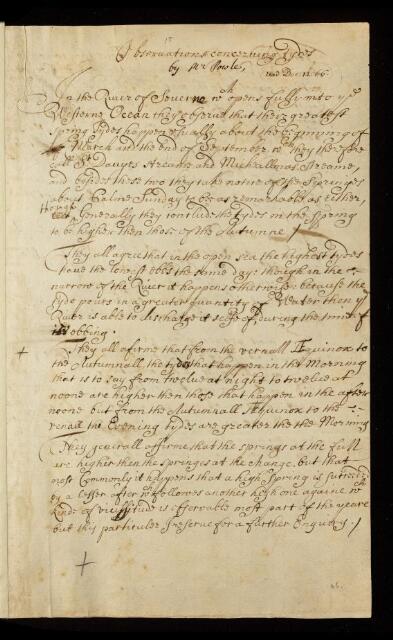 Observations concerning Tydes
by Mr Powle,
read Dec: 11. 66.
In the River of Severne wch opens fully into ye
Westerne Ocean they observe that their greatest
Spring Tydes happen usually about the beginning of
March and the end of September wch they therefore
call St Davyes Streame and Michallmas Streame,
and besides these two they take notice of the Springes
about Palme Sunday to bee as remarkable as either,
Generally they conclude the Tydes in the Spring
to be higher then those of the Autumne /
They all agree that in the open sea the highest tydes
have the lowest ebbs the same day: though in the
narrow of the River it happens otherwise because the
Tyde pours in a greater quantity of Water then ye
River is able to discharge it selfe of during the time of
Ebbing.
They all afirme that from the vernall Æquinox to
the Autumnall, the tydes that happen in the Morning
that is to say from twelve at night to twelve at
noone are higher then those that happen in the after
noone but from the Autumnall Æquinox to the
vernall the Evening tydes are greater the the Morning
They generall affirme that the springs at the full
are higher then the springes at the change. but that
most Commonly it happens that a high Spring is succeeded
by a lesser after wch followes another high one againe wch
kinde of vicissitude is observable most part of the yeare
but this particuler I reserve for a farther Enquiry. /